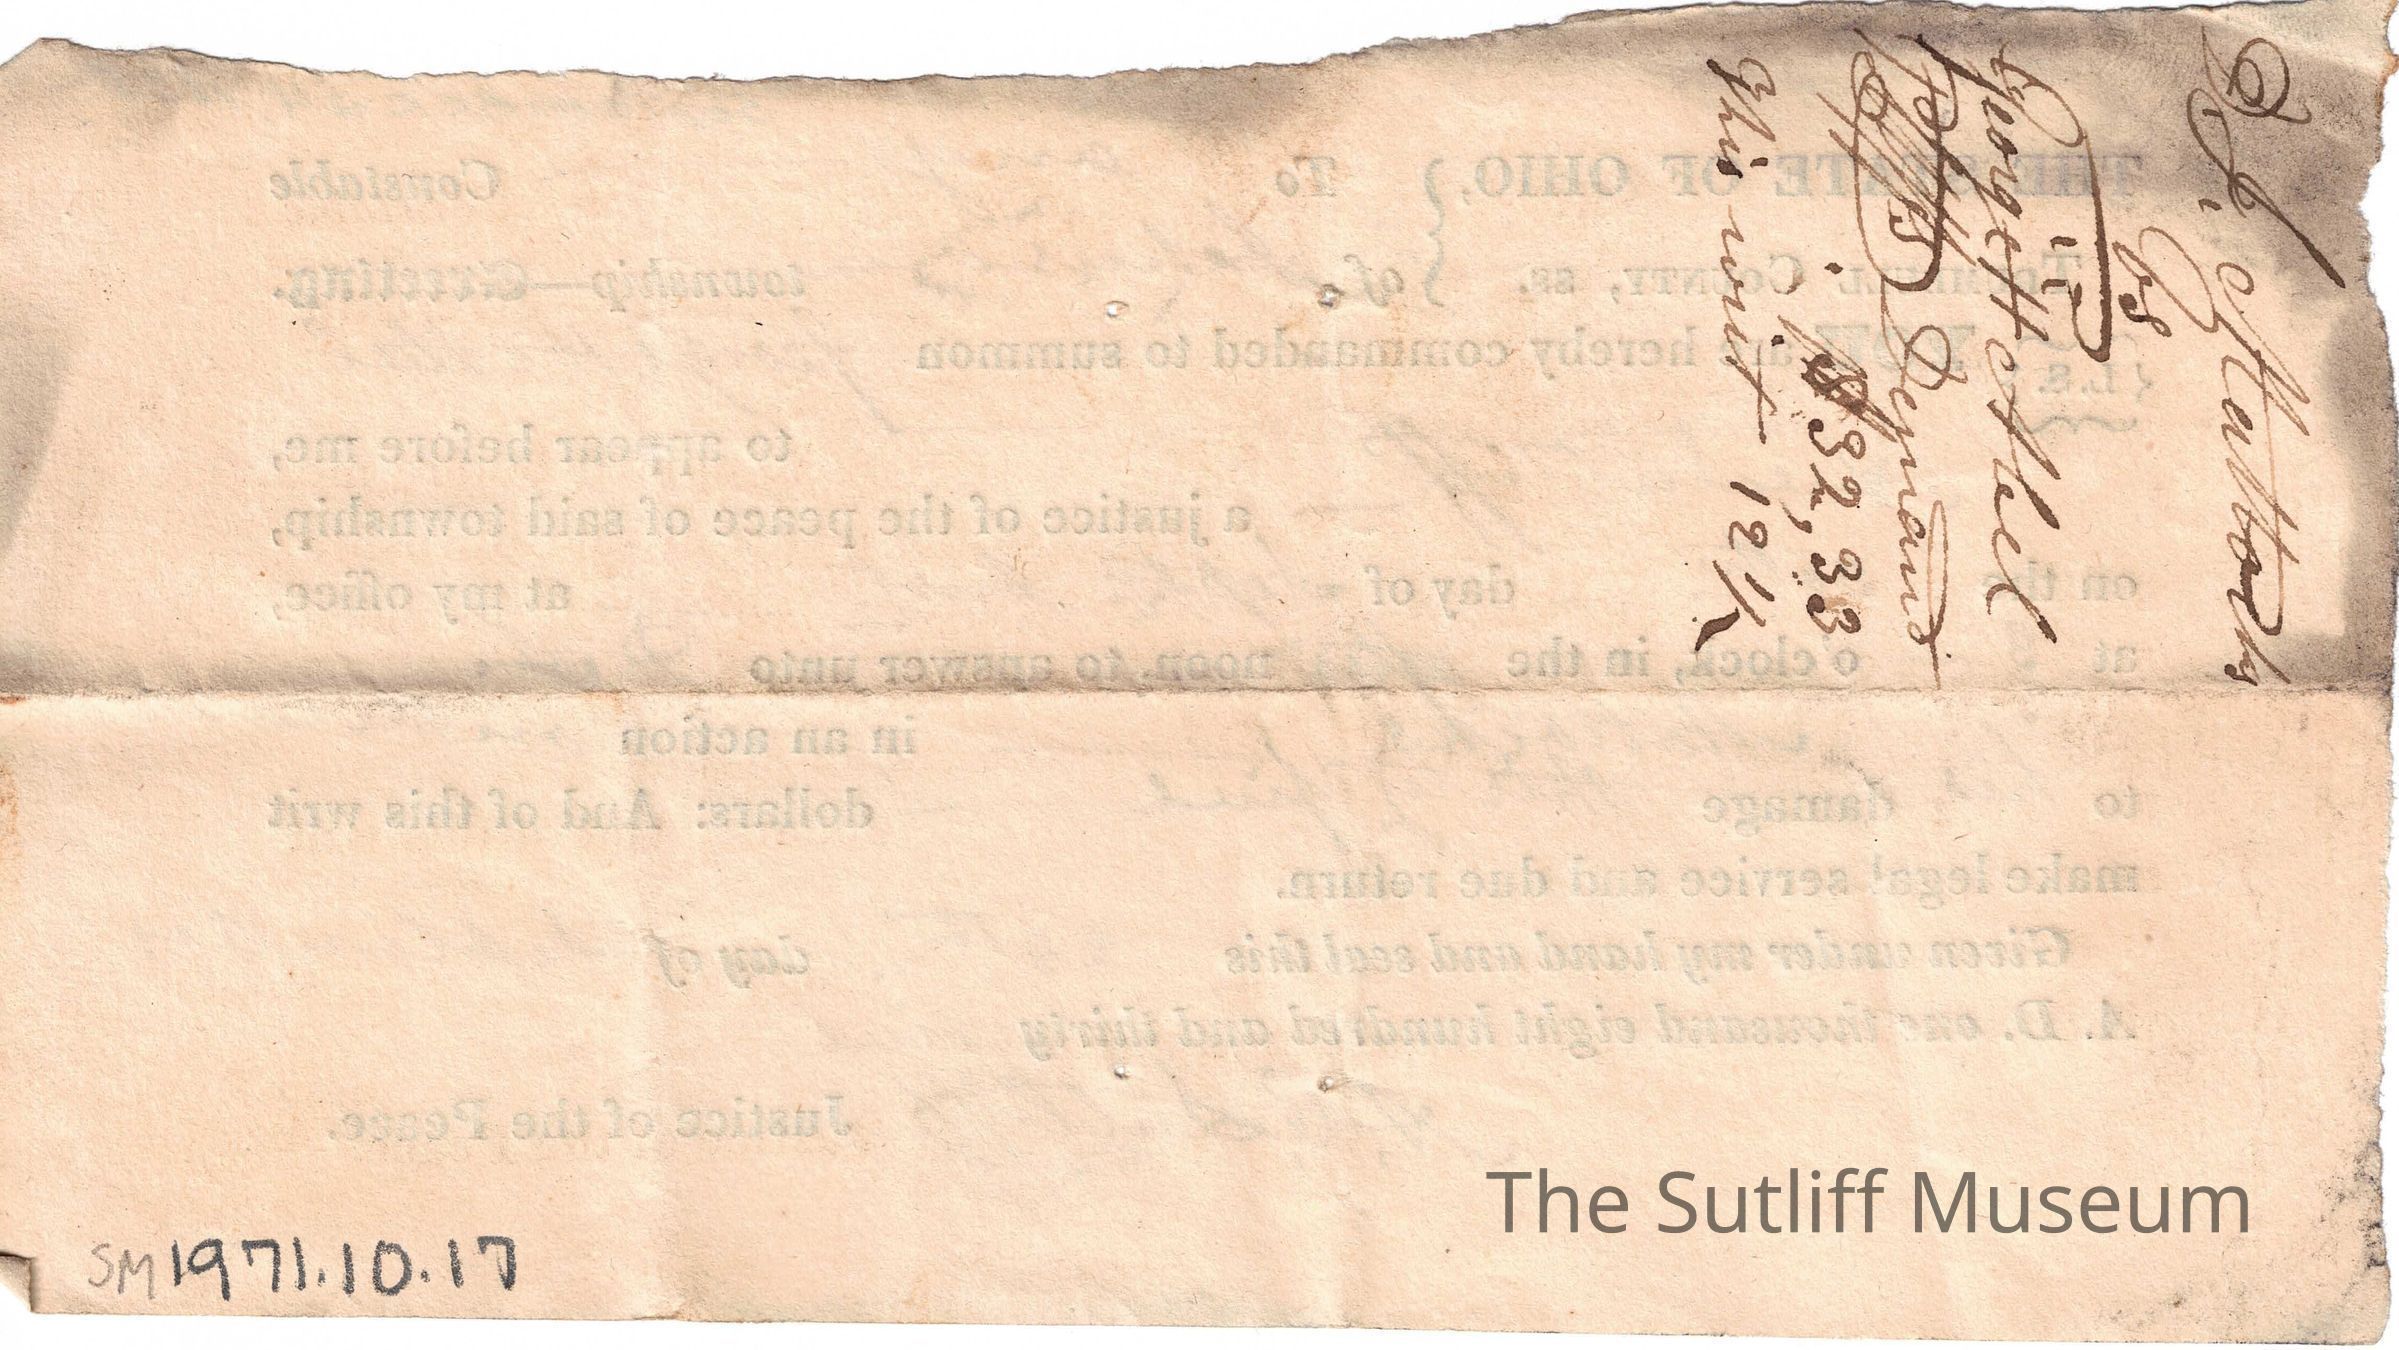 D. B. Mattocks
vs
George H Steel
Pltffs Demand
$32,33
This writ 12½
THE STATE OF OHIO,
To
Constable
TRUMBULL COUNTY, ss.
of
township—Greeting.
L.S.
YOU are hereby commanded to summon
to appear before me,
a justice of the peace of said township,
on the
day of
at my office,
at
o'clock, in the
noon, to answer unto
in an action
to
damage
dollars: And of this writ
make legal service and due return.
Given under my hand and seal this
day of
A. D. one thousand eight hundred and thirty
Justice of the Peace.
The Sutliff Museum
SM1971.10.17